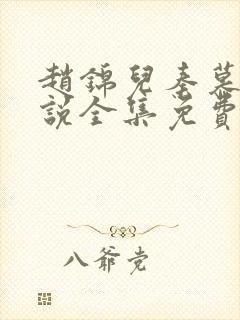 趙錦兒秦慕
說全集免費
八爺党